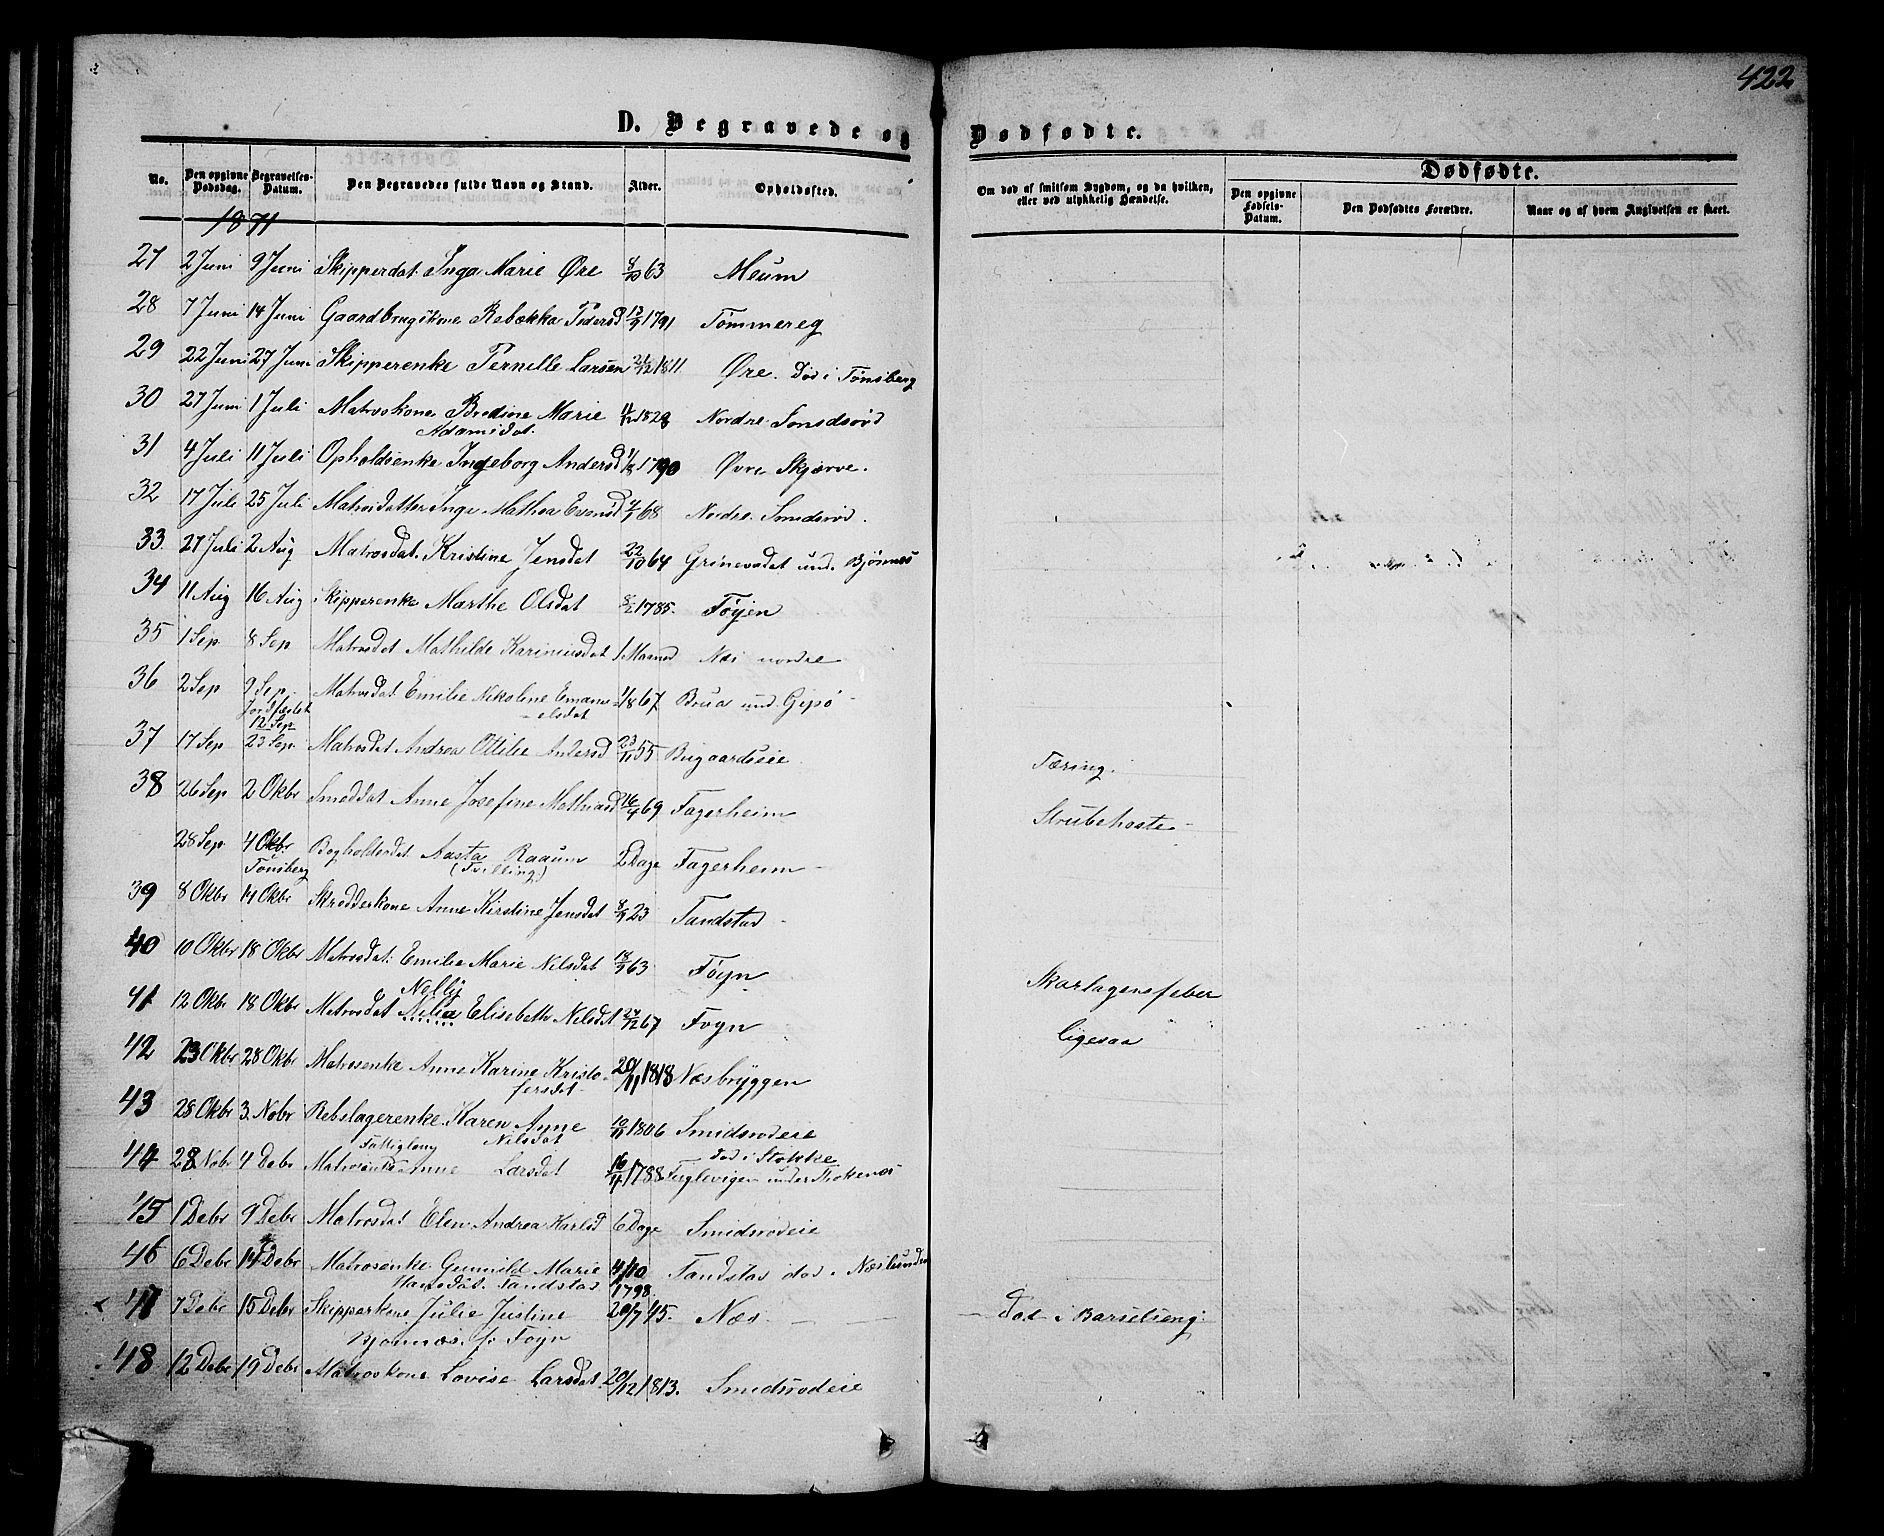 422
D. Begravede og Dødfødte.
No. Den opgivne Dødsdag. Begravelses-Datum. Den Begravedes fulde Navn og Stand. Alder. Opholdssted. Om død af smitsom Sygdom, og da hvilken, eller ved ulykkelig Hændelse. Dødfødte. Den opgivne Fødsels-Datum. Den Dødfødtes Forældre. Naar og af hvem Angivelsen er skeet.
1871
27 2 Juni 9 Juni Skipperdat. Inga Marie Øre 8/10 63 Meum
28 7 Juni 14 Juni Gaardbrugskone Rebekka Pedersd 13/9 1791 Tømmereg
29 22 Juni 27 Juni Skipperenke Pernille Larsen 21/12 1811 Øre. Død i Tønsberg
30 27 Juni 1 Juli Matroskone Bredine Marie Nordre
Adamsdat.
31 4 Juli 11 Juli Opholdsenke Ingeborg Andersd 1/8 1790 Øvre Skjerve.
32 17 Juli 25 Juli Matrosdatter Inge Mathea Evensd 4/9 68 Nordre Smidsrød.
33 27 Juli 2 Aug Matrosdat. Kristine Jensdat 22/10 64 und. Bjørnnes
34 11 Aug 16 Aug Skipperenke Marthe Olsdat 8/2 1785. Føyen
35 1 Sep 8 Sep Matrosdat Mathilde Karinusdat 1 Maaned Nes nordre
36 2 Sep 9 Sep. Matrosdat. Emilie Nikoline Emanu- 1/8 67 Brua und. Gipø
Jordfæstet -elsdat
12 Sep
37 17 Sep 23 Sep. Matrosdat Andrea Ottilie Andersd 23/11 55 Bugaardseie. Tæring.
38 26 Sep 2 Okbr Smeddat Anne Josefine Mathiasd 16/4 69 Fagerheim Strubehoste
28 Sep. 4 Okbr Bogholderdat Aasta Raaum 2 Dage Fagerheim
Tønsberg (Tvilling)
39 8 Okbr 14 Okbr Skredderkone Anne Kirstine Jensdat 8/9 23 Tandstad
40 10 Okbr 18 Okbr Matrosdat. Emilie Marie Nilsdat 18/9 63 Føyn Skarlagensfeber
Nelly
41 12 Okbr 18 Okbr Matrosdat Nilia Elisebeth Nilsdat 27/12 67 Føyn ligesaa
42 23 Okbr 28 Okbr Matrosenke Anne Karine Kristo- 20/11 1818 Næsbryggen
fersdat
43 28 Okbr 3. Nobr Rebslagerenke Karen Anne 10/11 1806 Smidsrødeie
Fattiglem Nilsdat død i Stokke
44 28 Nobr 4 Debr Matrosenke Anne Larsdat 16/4 1788 Fuglevigen under
45 1 Debr 9 Debr Matrosdat Elen Andrea Karlsd 6 Dage Smidsrødeie
46 6 Debr 14 Debr Matrosenke Gunnild Marie 4/10 Tandstad død i
Hansdat. Tandstad 1798
47 7 Debr 15 Debr Skipperkone Julie Justine 20/7 45. Næs Død i Barselseng.
Bjønnæs f. Føyn
48 12 Debr 19 Debr Matroskone Lovise Larsdat. 20/12 1813. Smidsrødeie